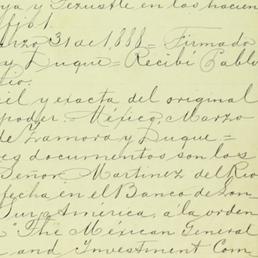 ya y Texustle en las hacien
arzo 31 de 1,888 = Firmado
y Duque = Recibí Cablo
io:
il y exacta del original
poder. México, Marzo
de Zamora y Duque =
documentos son los
Señor Martinez del Rio
fecha en el Banco de Lon
Sur America, á la orden
"The Mexican General
and Investment Com